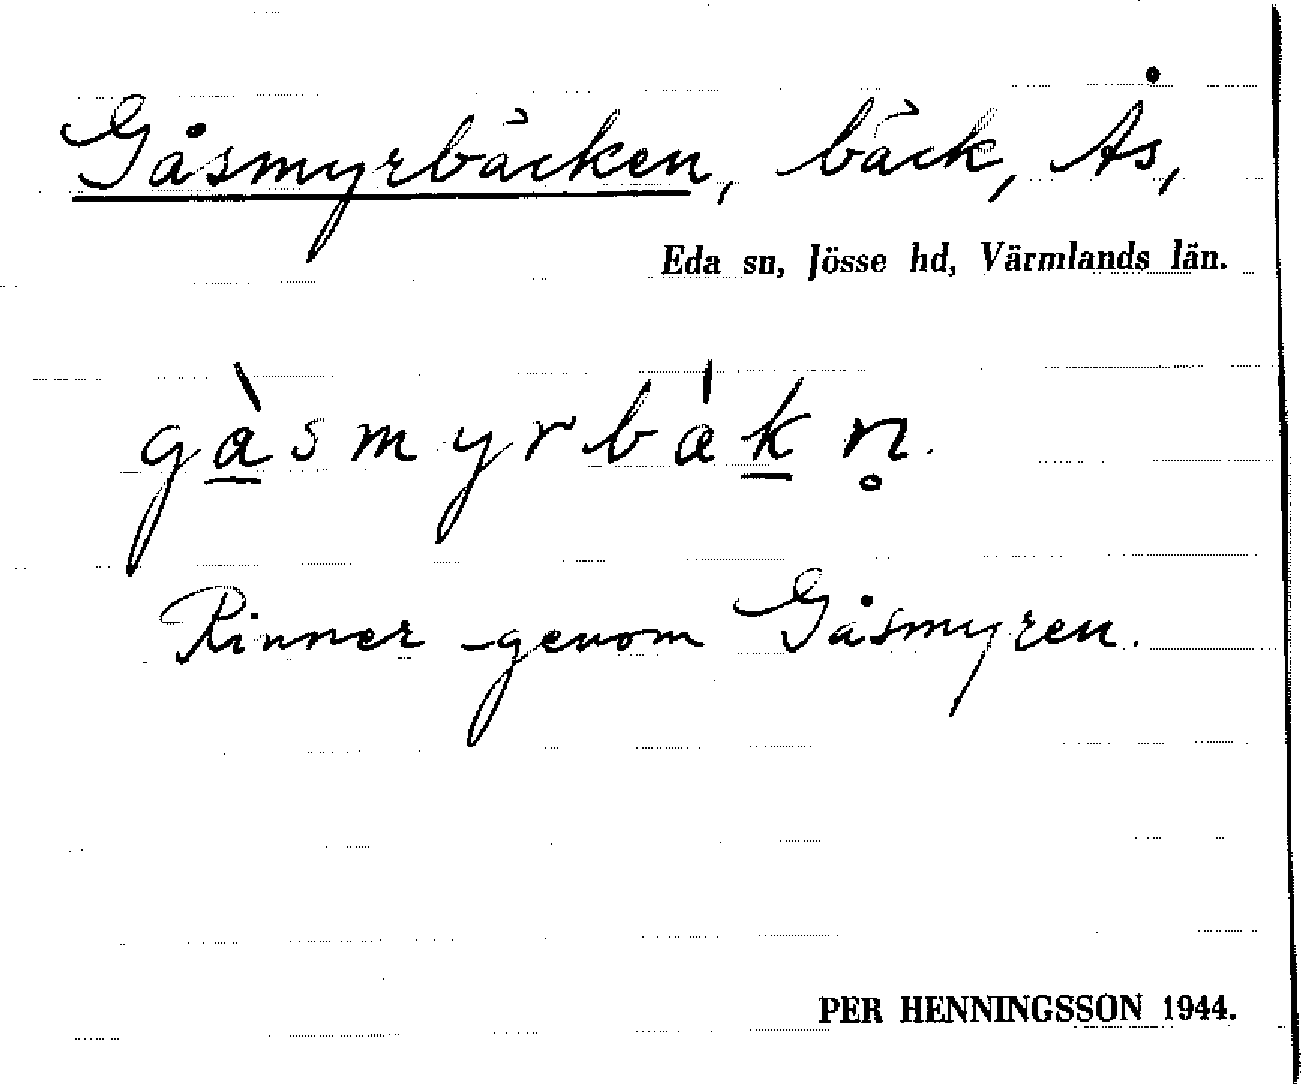 Gåsmyrbäcken, bäck, Ås,
Eda sn, Jösse hd, Värmlands län.
gå̀smyrbákn̥.
Rinner genom Gåsmyren.
PER HENNINGSSON 1944.